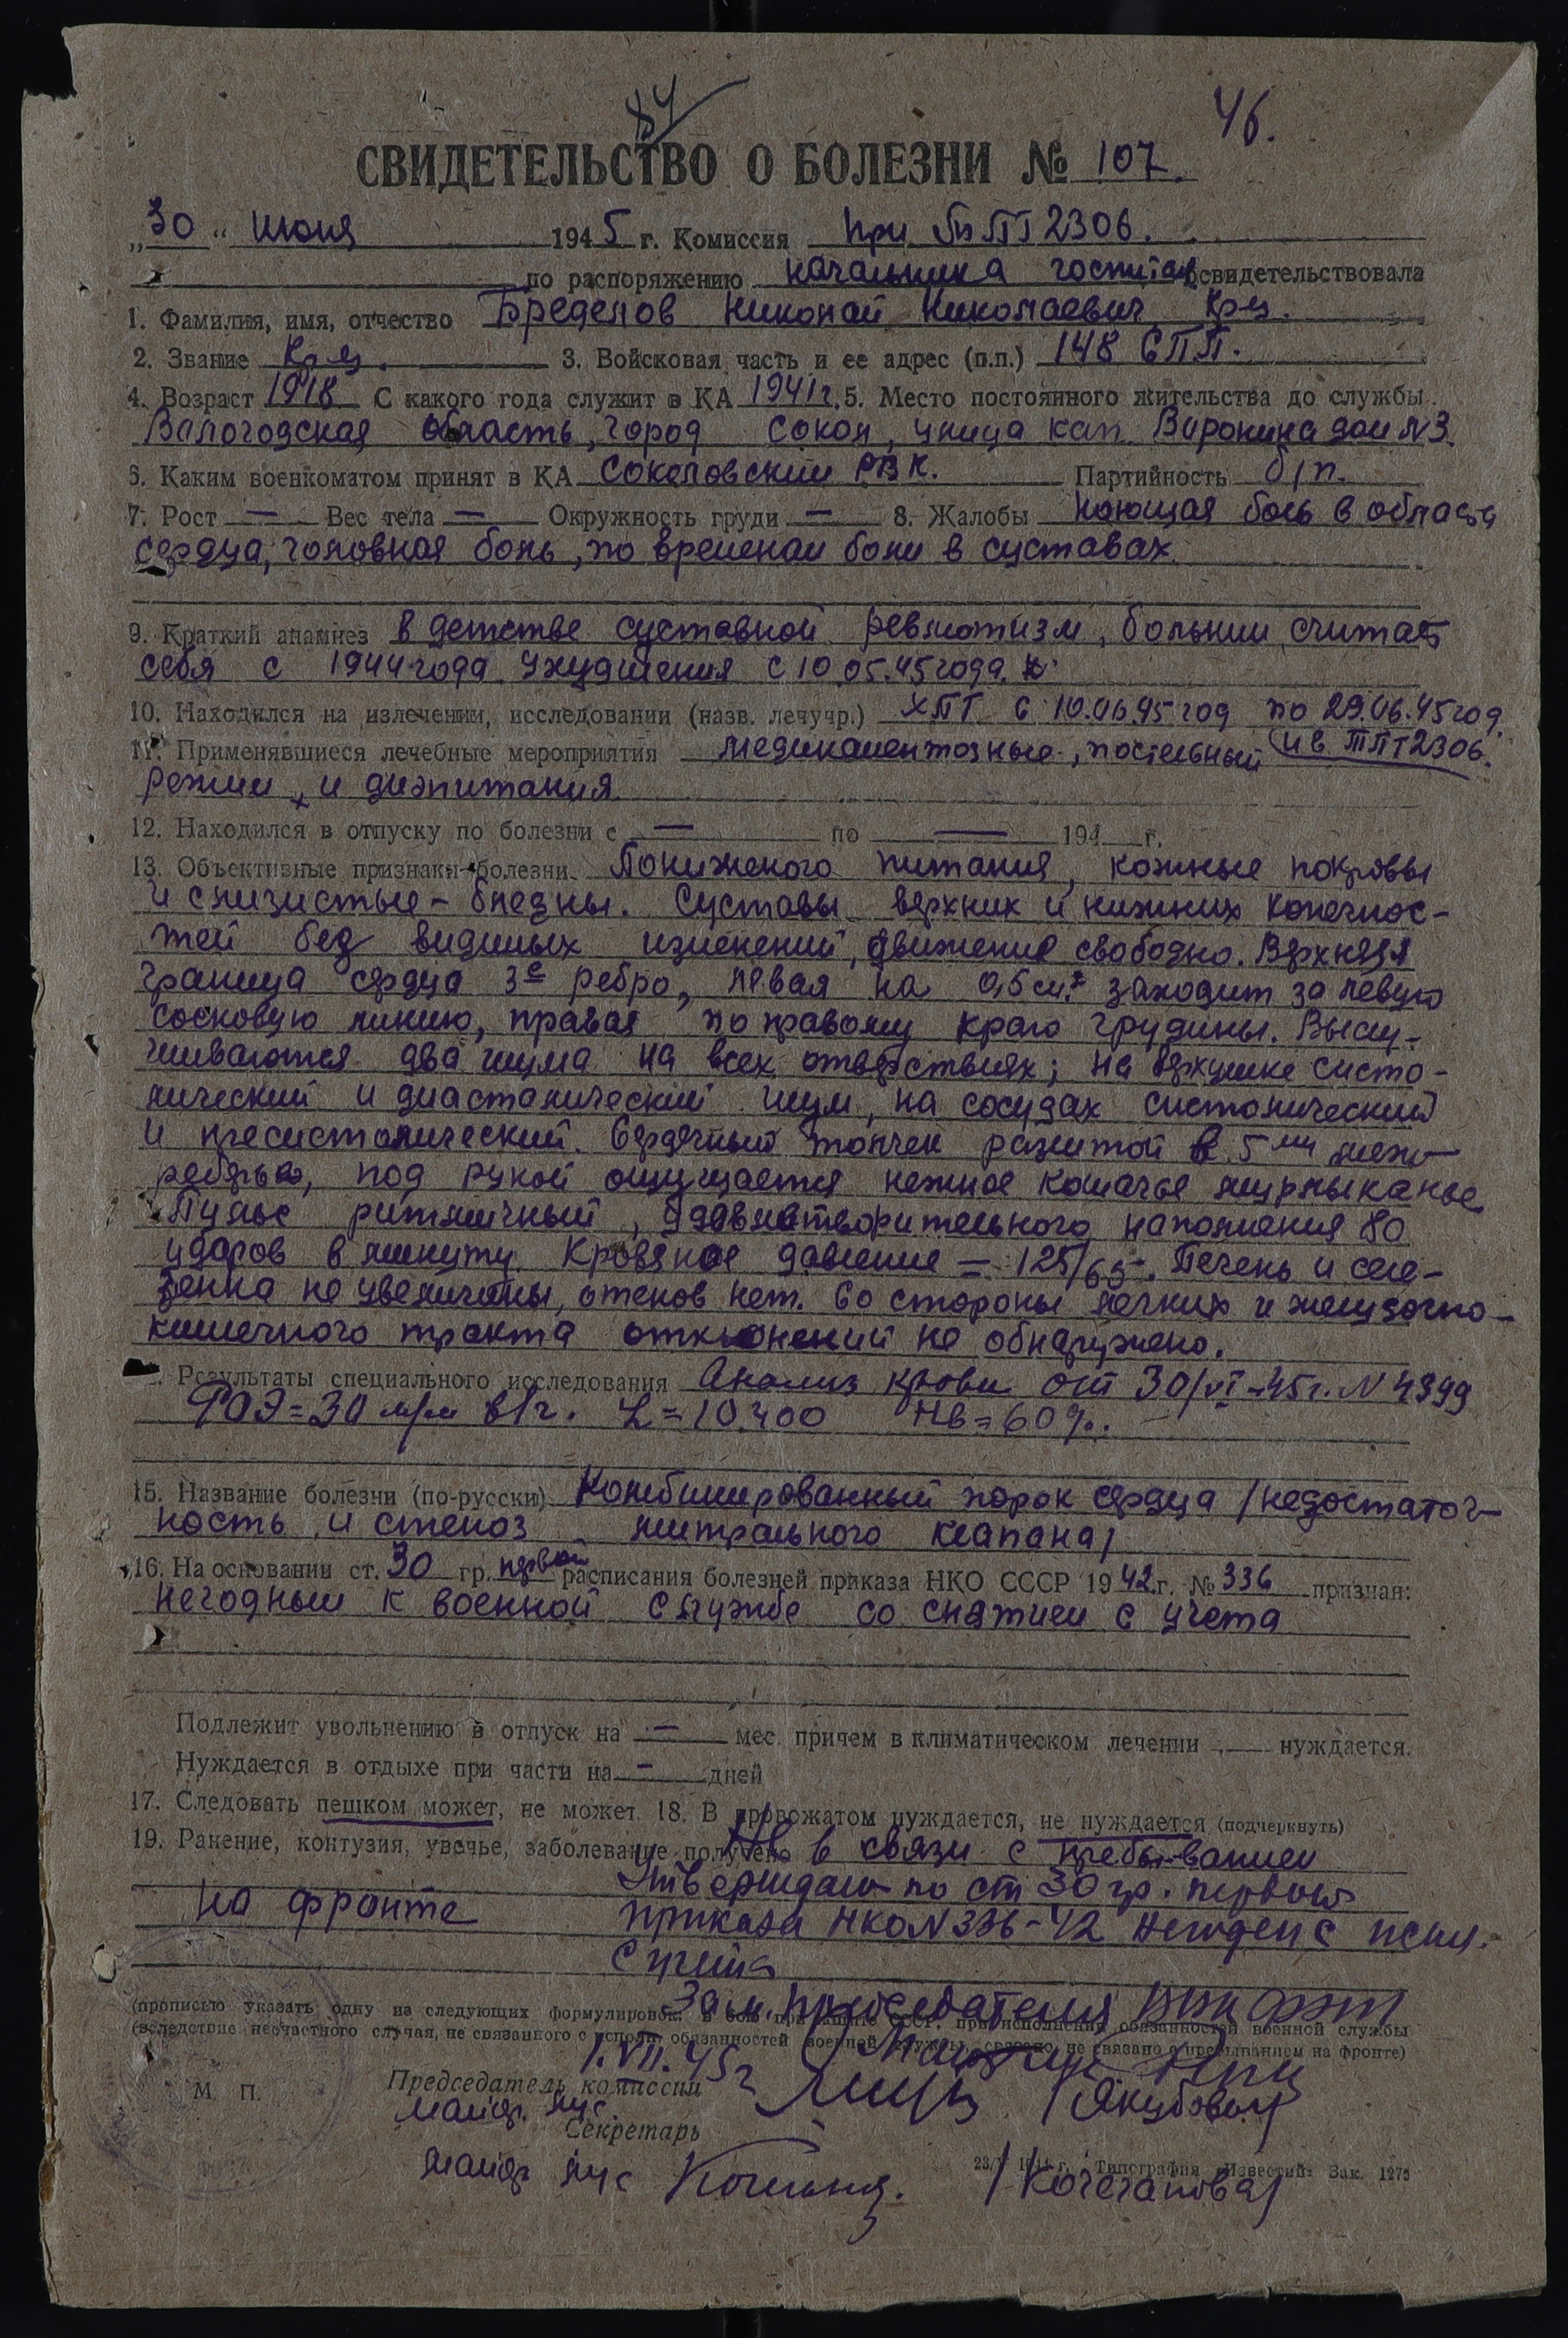 84
46.
СВИДЕТЕЛЬСТВО О БОЛЕЗНИ № 107.
„30“ июня 1945 г. Комиссия при ТППГ 2306.
по распоряжению начальника госпиталя освидетельствовала
1. Фамилия, имя, отчество Бределов Николай Николаевич Кр-ц.
2. Звание Кр-ц. 3. Войсковая часть и ее адрес (п.п.) 148 СПП.
4. Возраст 1918 С какого года служит в КА 1941г. 5. Место постоянного жительства до службы
Валогодская область, город Сокол, улица кап. Варонина дом N3.
6. Каким военкоматом принят в КА Сокаловский РВК. Партийность б/п.
7. Рост — Вес тела — Окружность груди — 8. Жалобы Ноющая боль в области
сердца, головная боль, по временам боли в суставах.
9. Краткий анамнез В детстве суставной ревматизм, больным считает
себя с 1944 года. Ухудшения с 10.05.45 года.
10. Находился на излечении, исследовании (назв. лечучр.) ХПГ с 10.06.45 год по 29.06.45 год.
и в ТПГ 2306.
11. Применявшиеся лечебные мероприятия медикаментозные, постельный
режим, и диэпитания
12. Находился в отпуску по болезни с — по — 194 г.
13. Объективные признаки болезни. Пониженого питания, кожные покровы
и слизистые – бледны. Суставы верхних и нижних конечнос-
тей без видимых изменений, движение свободно. Верхняя
граница сердца 3е ребро, левая на 0,5 см. заходит за левую
сосковую линию, правая по правому краю грудины. Выслу-
шиваются два шума на всех отверствиях; на верхушке систо-
лический и диастолический шум, на сосудах систолический
и пресистолический. Сердечный толчек разлитой в 5ом меж-
реберье, под рукой ощущается нежное кошачье мурлыканье.
Пульс ритмичный, удовлетворительного наполнения 80
ударов в минуту. Кровяное давление = 125/65. Печень и селе-
зенка не увеличены, отеков нет. Со стороны легких и желудочно-
кишечного тракта отклонений не обнаружено.
Результаты специального исследования Анализ крови от 30/VI-45г. N 4399
РОЭ = 30 м/м в/г. L = 10.400 Hb = 60%.
15. Название болезни (по-русски) Комбинированный порок сердца /недостаточ-
ность и стеноз митрального клапана/
16. На основании ст. 30 гр. первой расписания болезней приказа НКО СССР 1942 г. № 336 признан:
Негодным к военной службе со снятием с учета
Подлежит увольнению в отпуск на — мес. причем в климатическом лечении — нуждается.
Нуждается в отдыхе при части на — дней
17. Следовать пешком может, не может. 18. В провожатом нуждается, не нуждается (подчеркнуть)
19. Ранение, контузия, увечье, заболевание получено в связи с пребыванием
на фронте
Утверждаю по ст 30 гр. первой
приказа НКО N 336-42 Негоден с искл.
с учета
Зам. председателя ВВК ФЭП
(прописью указать одну из следующих формулировок: в бою при защите СССР, при исполнении обязанностей военной службы
(вследствие несчастного случая, не связанного с исполн. обязанностей военной службы, связано, не связано с пребыванием на фронте)
1.VII.45г
М. П.
Председатель комиссии
майор м/с. /Якубович/
Секретарь
майор м/с /Кочеганова/
1944 г. Типография „Известий“ Зак. 1275